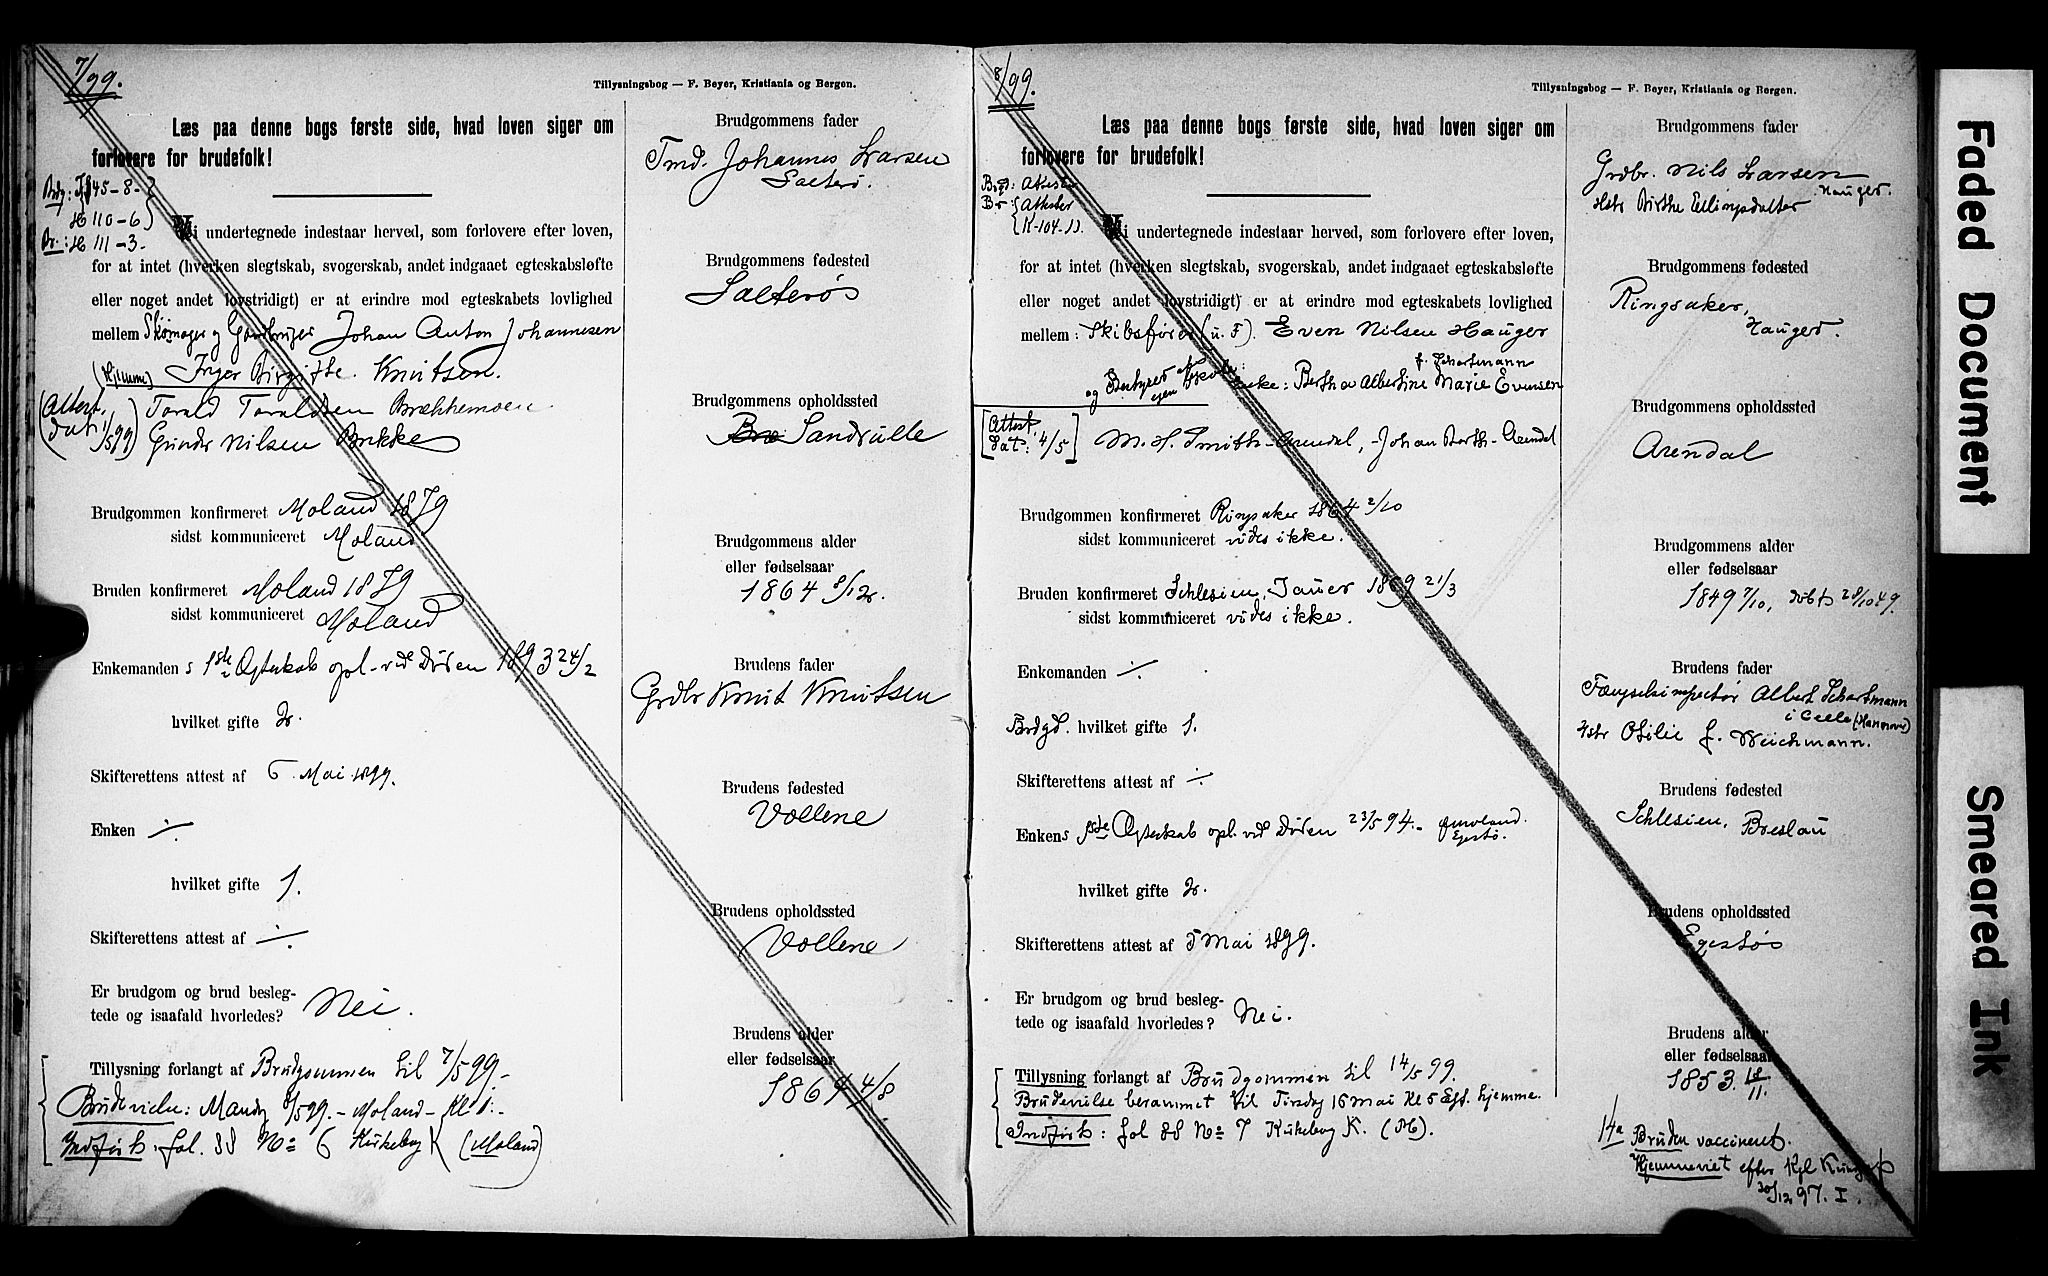 7/99.
Tillysningsbog — F. Beyer, Kristiania og Bergen.
Læs paa denne bogs første side, hvad loven siger om
forlovere for brudefolk!
Brdg: J 145-8-
H 110-6
Br.: H 111-3-
Vi undertegnede indestaar herved, som forlovere efter loven,
for at intet (hverken slegtskab, svogerskab, andet indgaaet egteskabsløfte
eller noget andet lovstridigt) er at erindre mod egteskabets lovlighed
mellem Skomager og Gaardbruger Johan Anton Johannesen
(Hjemme) Inger Birgitte Knutsen.
(Attest. dat. 1/5 99) Torald Toraldsen Brækkemoen
Gunder Nilsen Brekke
Brudgommen konfirmeret Moland 1879
sidst kommuniceret Moland
Bruden konfirmeret Moland 1879
sidst kommuniceret Moland
Enkemandens 1ste Ægteskab opl. ved Døden 1893 24/2
hvilket gifte 2.
Skifterettens attest af 6 Mai 1899.
Enken ./.
hvilket gifte 1.
Skifterettens attest af ./.
Er brudgom og brud besleg-
tede og isaafald hvorledes? Nei.
Tillysning forlangt af Brudgommen til 7/5 99-
Brudevielse: Mandg 8/5 99.- Moland- Kl 1:-
Indført: fol. 88 No 6 Kirkebog K (Moland)
Brudgommens fader
Tmd. Johannes Larsen
Salterø.
Brudgommens fødested
Salterøs
Brudgommens opholdssted
Sandrulle
Brudgommens alder
eller fødselsaar
1864 8/12.
Brudens fader
Grdbr Knut Knutsen
Brudens fødested
Vollene
Brudens opholdssted
Vollene
Brudens alder
eller fødselsaar
1864 4/8
8/99.
Tillysningsbog — F. Beyer, Kristiania og Bergen.
Læs paa denne bogs første side, hvad loven siger om
forlovere for brudefolk!
Brdg: Attester
Br: Attester
K-104-11.
Vi undertegnede indestaar herved, som forlovere efter loven,
for at intet (hverken slegtskab, svogerskab, andet indgaaet egteskabsløfte
eller noget andet lovstridigt) er at erindre mod egteskabets lovlighed
mellem: Skibsfører (u. F). Even Nilsen Hauger
f. Schartmann
og Enke: Bertha Albertine Marie Evensen
[Attest. dat: 4/5] M. H. Smith-Arendal, -Johan Barth-Arendal
Brudgommen konfirmeret Ringsaker 1864 2/10
sidst kommuniceret vides ikke.
Bruden konfirmeret Schlesien, Jauer 1869 21/3
sidst kommuniceret vides ikke.
Enkemanden ./.
Brdgd. hvilket gifte 1.
Skifterettens attest af ./.
Enkens 1ste Ægteskab opl. ved Døden 23/5 94.- Ømoland. Egestø.
hvilket gifte 2.
Skifterettens attest af 5 Mai 1899.
Er brudgom og brud besleg-
tede og isaafald hvorledes? Nei.
Tillysning forlangt af Brudgommen til 14/5 99.
Brudevielse berammet til Tirsdag 16 Mai Kl 5 Eft. hjemme.
Indført: fol 88 No 7 Kirkebog K. (M).
Brudgommens fader
Grdbr. Nils Larsen
Hauger.
Hstr Birthe Ellingsdatter
Brudgommens fødested
Ringsaker,
Hauger.
Brudgommens opholdssted
Arendal
Brudgommens alder
eller fødselsaar
1849 7/10, døbt 28/10 49.
Brudens fader
Fængselsinspectør Albert Schartmann
i Celle (Hannover)
Hstr Otilie f. Weichmann.
Brudens fødested
Schlesien, Breslau
Brudens opholdssted
Egestøs
Brudens alder
eller fødselsaar
1853. 18/11.
14a Bruden vaccineret.
Hjemmeviet efter Kgl Kundg. af
30/12 97. I.
Faded Document
Smeared Ink